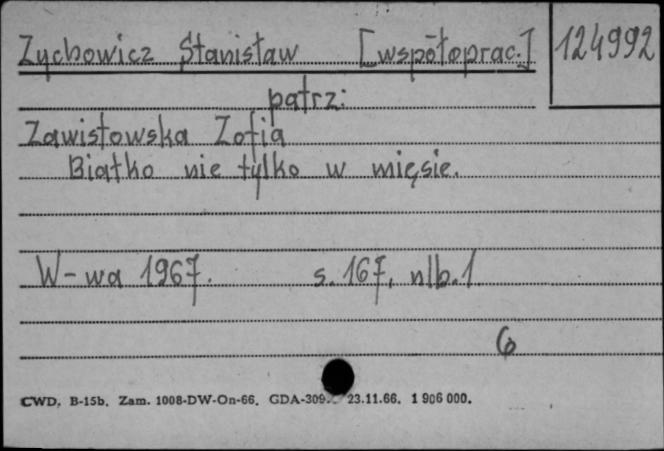 Zychowicz Stanisław [współoprac.]
124992
patrz:
Zawistowska Zofia
Białko nie tylko w mięsie.
W-wa 1967. s. 167, nlb. 1
6
CWD. B-15b. Zam. 1008-DW-On-66. GDA-309. 23.11.66. 1 906 000.